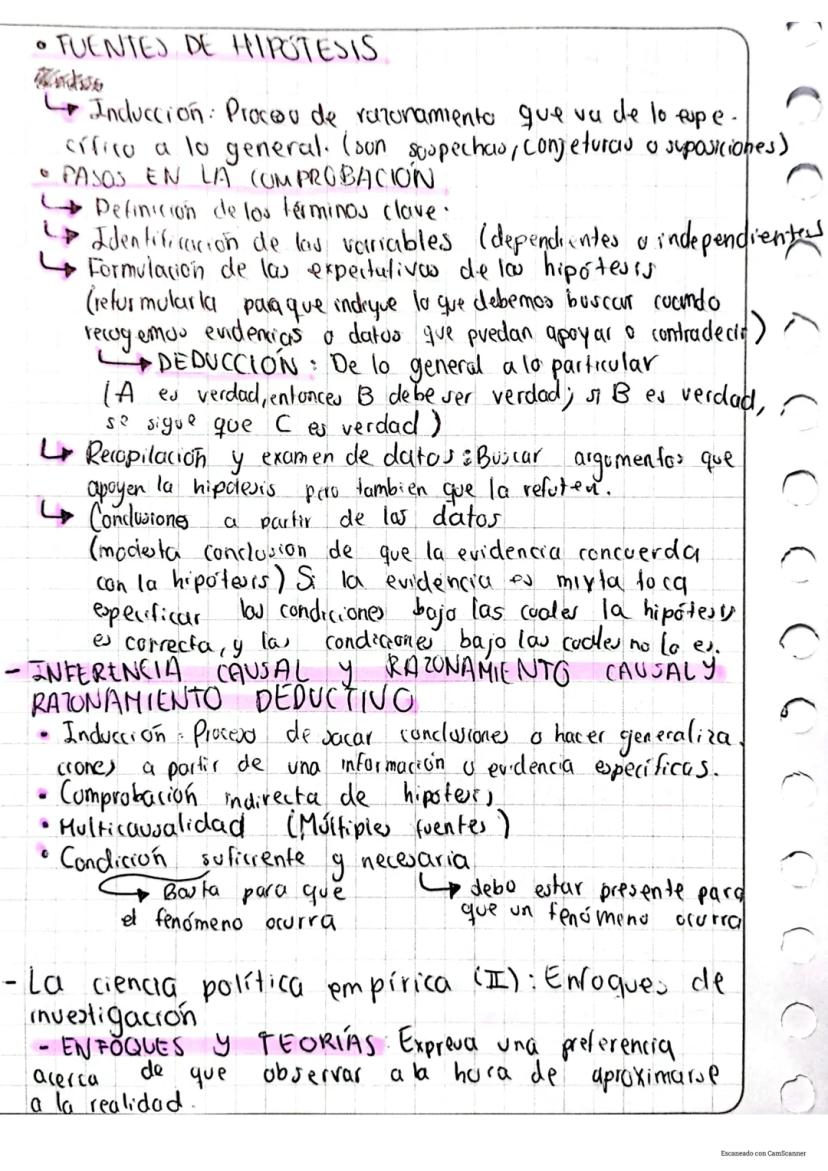 • FUENTES DE HIPÓTESIS
↳ Inducción: Proceso de razonamiento que va de lo espe-
cífico a lo general. (son sospechas, conjeturas o suposiciones)
• PASOS EN LA COMPROBACIÓN
↳ Definición de los términos clave.
↳ Identificación de las variables (dependientes o independientes
↳ Formulación de las expectativas de las hipótesis
(reformularla para que indique lo que debemos buscar cuando
recogemos evidencias o datos que puedan apoyar o contradecir)
↳ DEDUCCIÓN: De lo general a lo particular
(A es verdad, entonces B debe ser verdad; si B es verdad,
se sigue que C es verdad)
↳ Recopilación y examen de datos: Buscar argumentos que
apoyen la hipótesis pero tambien que la refuten.
↳ Conclusiones a partir de los datos
(modesta conclusion de que la evidencia concuerda
con la hipótesis) Si la evidencia es mixta toca
especificar las condiciones bajo las cuales la hipótesis
es correcta, y las condiciones bajo las cuales no lo es.
- INFERENCIA CAUSAL y RAZONAMIENTO CAUSAL y
RAZONAMIENTO DEDUCTIVO
• Inducción: Proceso de sacar conclusiones o hacer generaliza.
ciones a partir de una información o evidencia específicas.
• Comprobación indirecta de hipotesis
• Multicausalidad (Múltiples fuentes)
• Condición suficiente y necesaria
↳ Basta para que ↳ debo estar presente para
el fenómeno ocurra que un fenómeno ocurra
- La ciencia política empírica (II): Enfoques de
investigación
- ENFOQUES Y TEORÍAS: Expresa una preferencia
acerca de que observar a la hora de aproximarse
a la realidad.
Escaneado con CamScanner